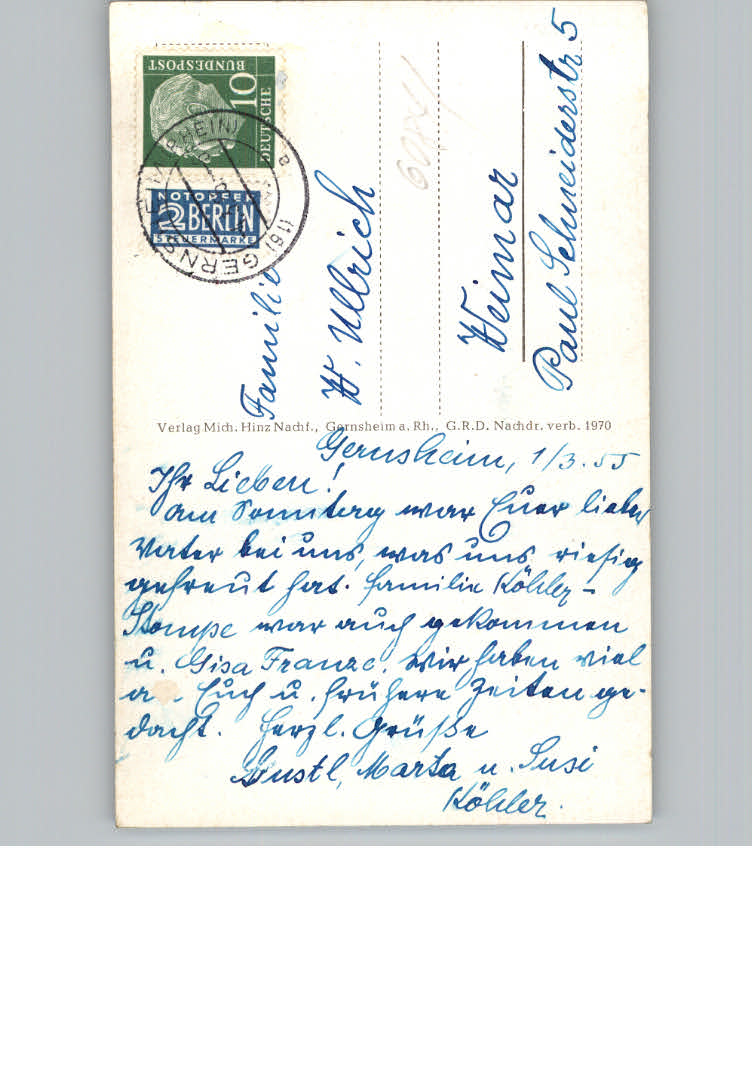 Gernsheim, 1/3.55
Ihr Lieben!
Am Sonntag war Euer lieber
Vater bei uns, was uns riesig
gefreut hat. Familie Köhler-
war auch gekommen
u. Gisa Franze. Wir haben viel
a. Euch u. frühere Zeiten ge-
dacht. Herzl. Grüße
Gustl, Marta u. Susi
Köhler.
Verlag Mich. Hinz Nachf., Gernsheim a. Rh., G.R.D. Nachdr. verb. 1970
Familie
W. Ullrich
Weimar
Paul Schneiderstr. 5
DEUTSCHE
BUNDESPOST
10
NOTOPFER
2 BERLIN
STEUERMARKE
(16) GERNSHEIM (RHEIN)
a